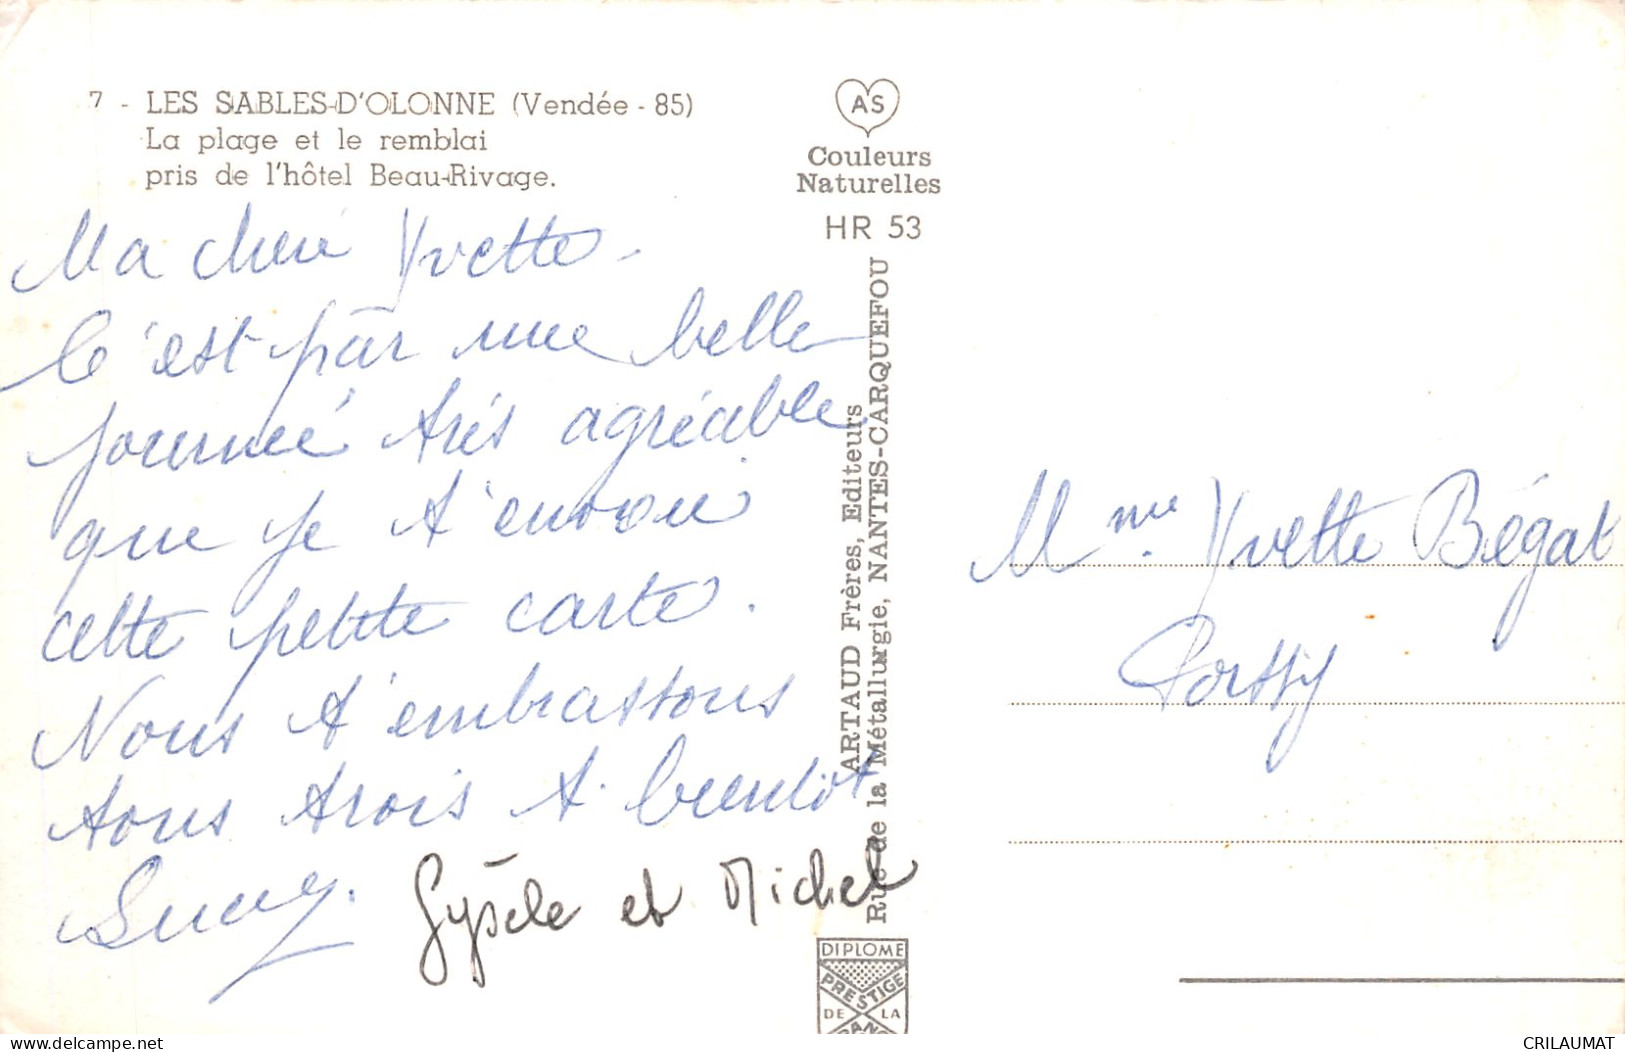 7 - LES SABLES-D'OLONNE (Vendée - 85)
La plage et le remblai
pris de l'hôtel Beau-Rivage.
AS
Couleurs
Naturelles
HR 53
Ma cheré Yvette.
C'est par une belle
journeé trés agréable
que je t'envoie
cette petite carte.
Nous t'embrassons
tous trois A. bientôt
Gysèle et Michel
ARTAUD Frères, Editeurs
Rue de la Métallurgie, NANTES-CARQUEFOU
Mme. Yvette Bégat
DIPLOME
PRESTIGE
DE LA
www.delcampe.net
CRILAUMAT